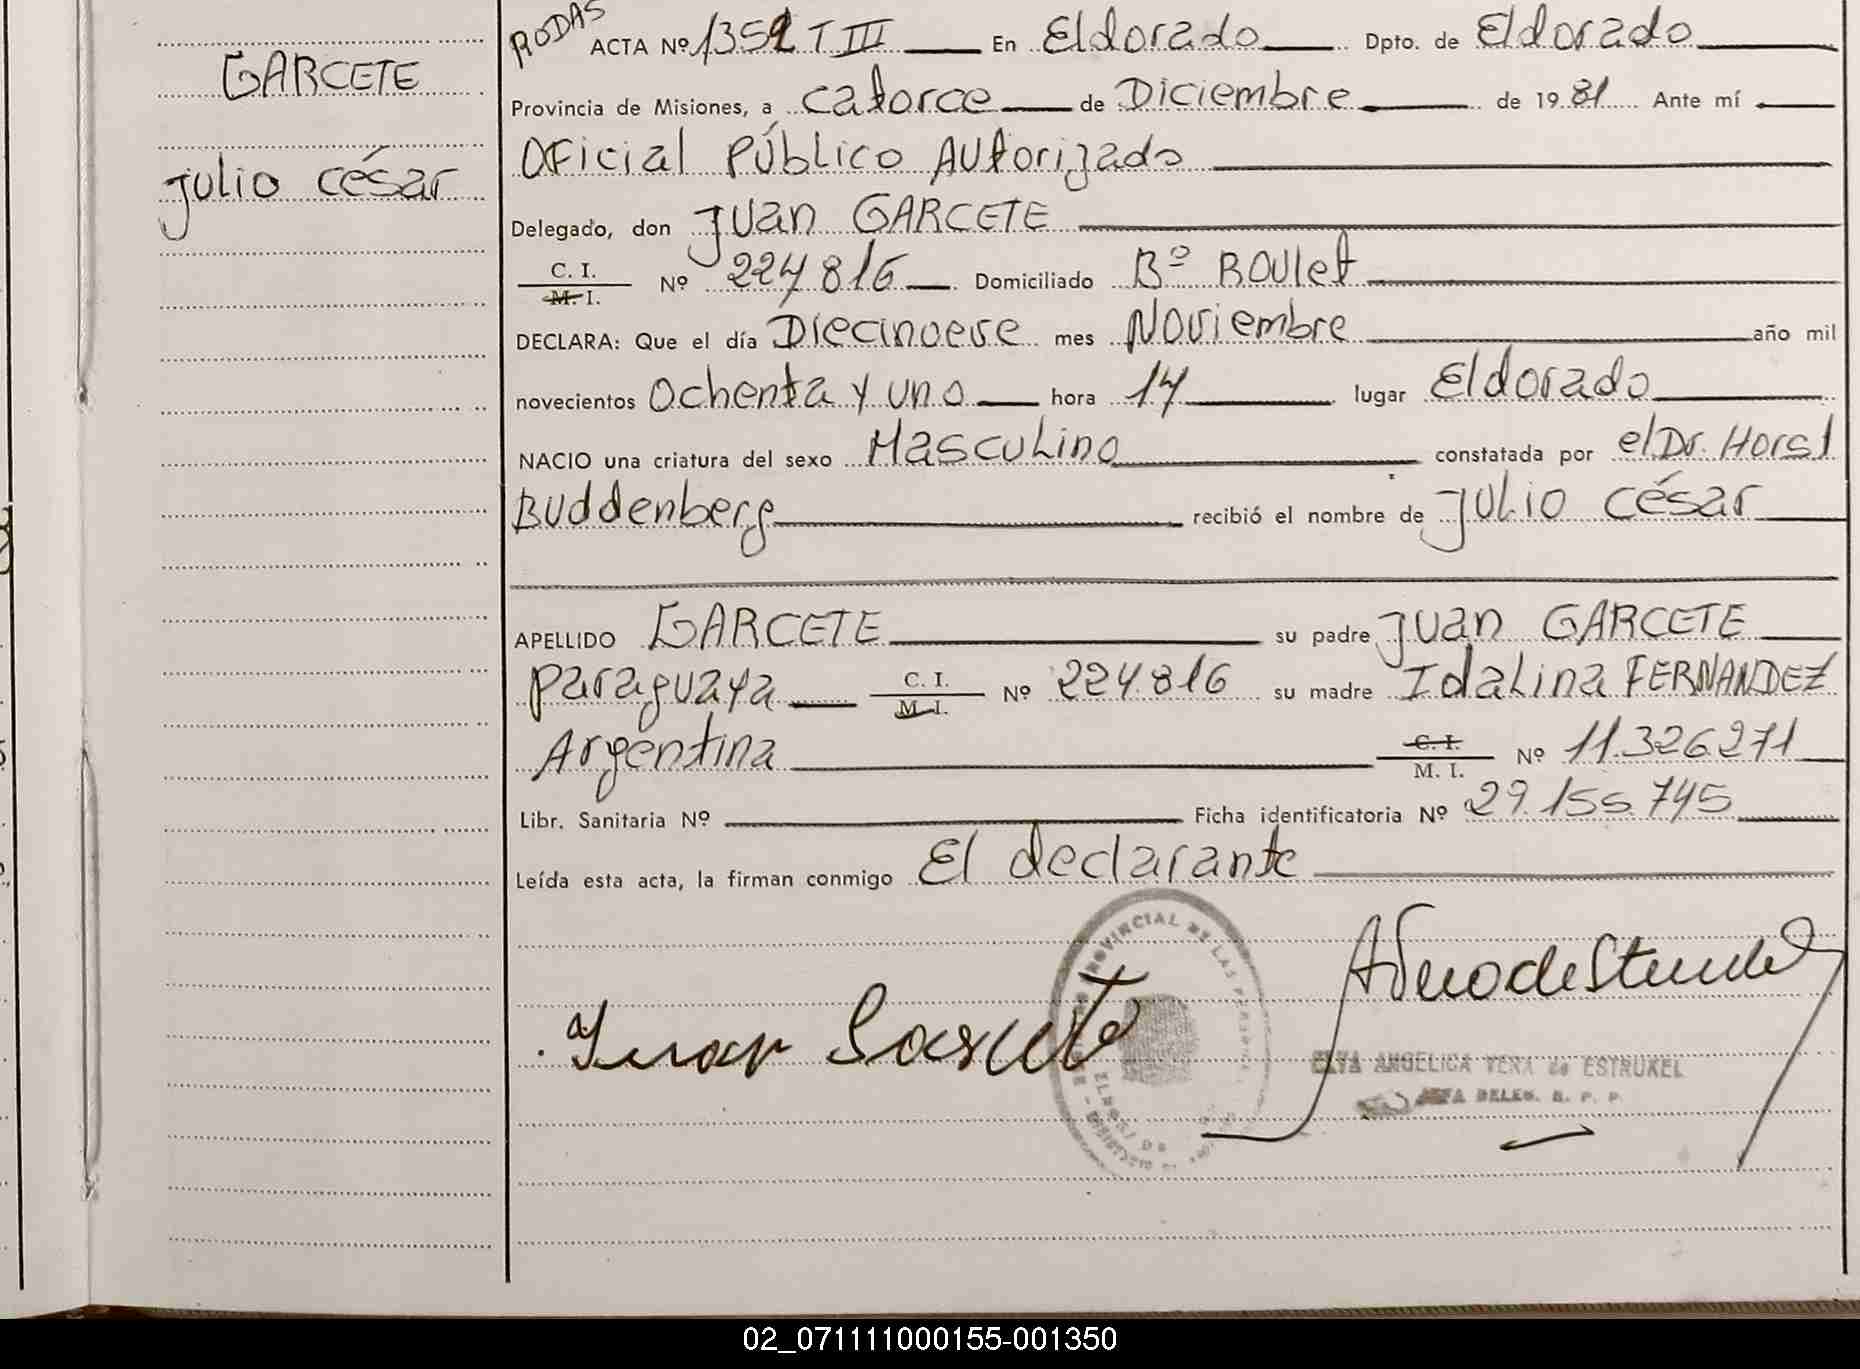 GARCETE
Julio César
RODAS
ACTA Nº 1352 T III En Eldorado Dpto. de Eldorado
Provincia de Misiones, a catorce de Diciembre de 1981 Ante mí
Oficial Público Autorizado
Delegado, don Juan GARCETE
C. I.
M. I. Nº 224816 Domiciliado Bº Roulet
DECLARA: Que el día Diecinueve mes Noviembre año mil
novecientos Ochenta y uno hora 14 lugar Eldorado
NACIO una criatura del sexo Masculino constatada por el Dr. Horst
Buddenberg recibió el nombre de Julio César
APELLIDO GARCETE su padre Juan GARCETE
Paraguaya C. I. M. I. Nº 224.816 su madre Idalina FERNANDEZ
Argentina C. I. M. I. Nº 11.326.271
Libr. Sanitaria Nº Ficha identificatoria Nº 29.155.745
Leída esta acta, la firman conmigo El declarante
PROVINCIAL DE LAS PERSONAS
Juan Garcete
ELVA ANGELICA VERA de ESTRUKEL
JEFA DELEG. R. P. P.
02_071111000155-001350